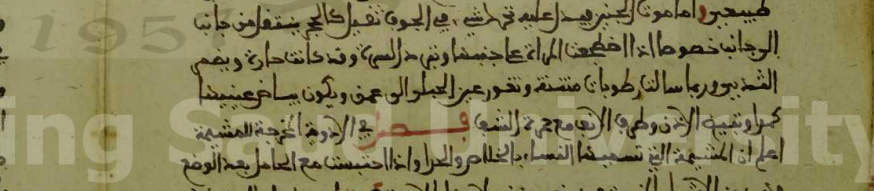 طبيعي واما موت الجنين فيدل عليه تحرك شيء في الجوف ثقيل كالحجر ينتقل من جانب
الى جانب خصوصا اذا اضطجعت المراة على جنبها وتبرد السرة وقد كانت حارة ويضمر
الثدي وربما سالت رطوبات منتنة وتغور عين الحبلى الى عمق ويكون بياض عينيها
كمدا وتبيض الاذن وطرف الانف مع حمرة الشفة فصل في الادوية المخرجة للمشيمة
اعلم ان المشيمة التي تسميها النساء بالخلاص والحرا واذا احتبست مع الحامل بعد الوضع
1957
King Saud University